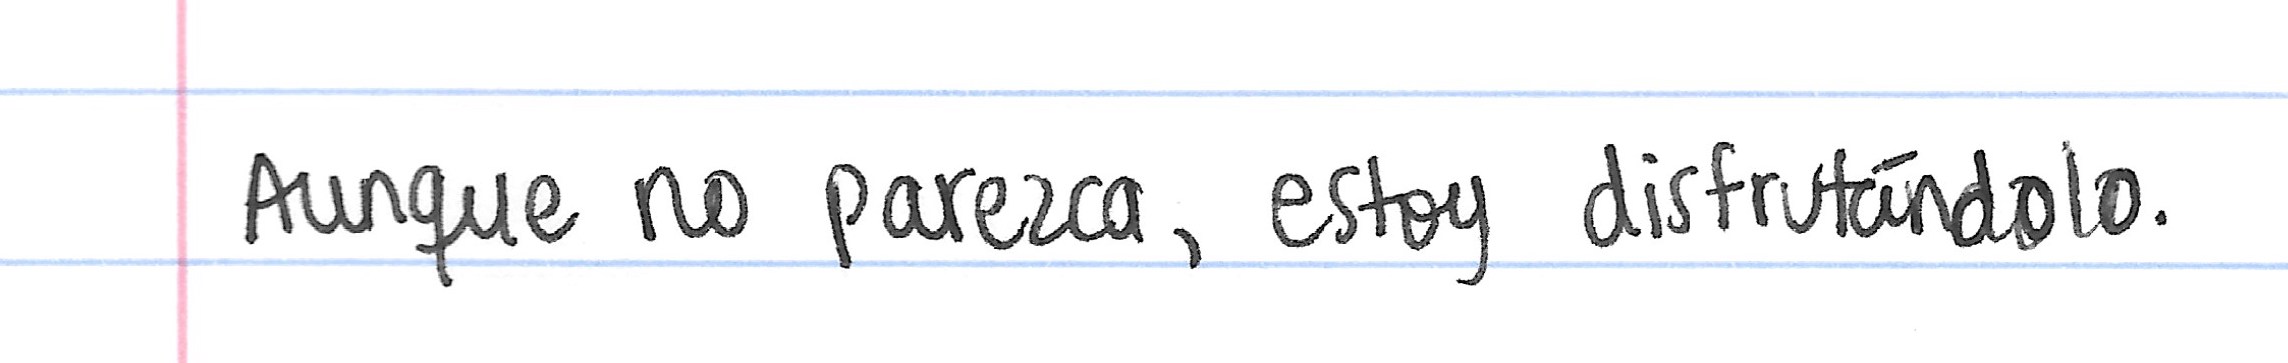 Aunque no parezca, estoy disfrutándolo.